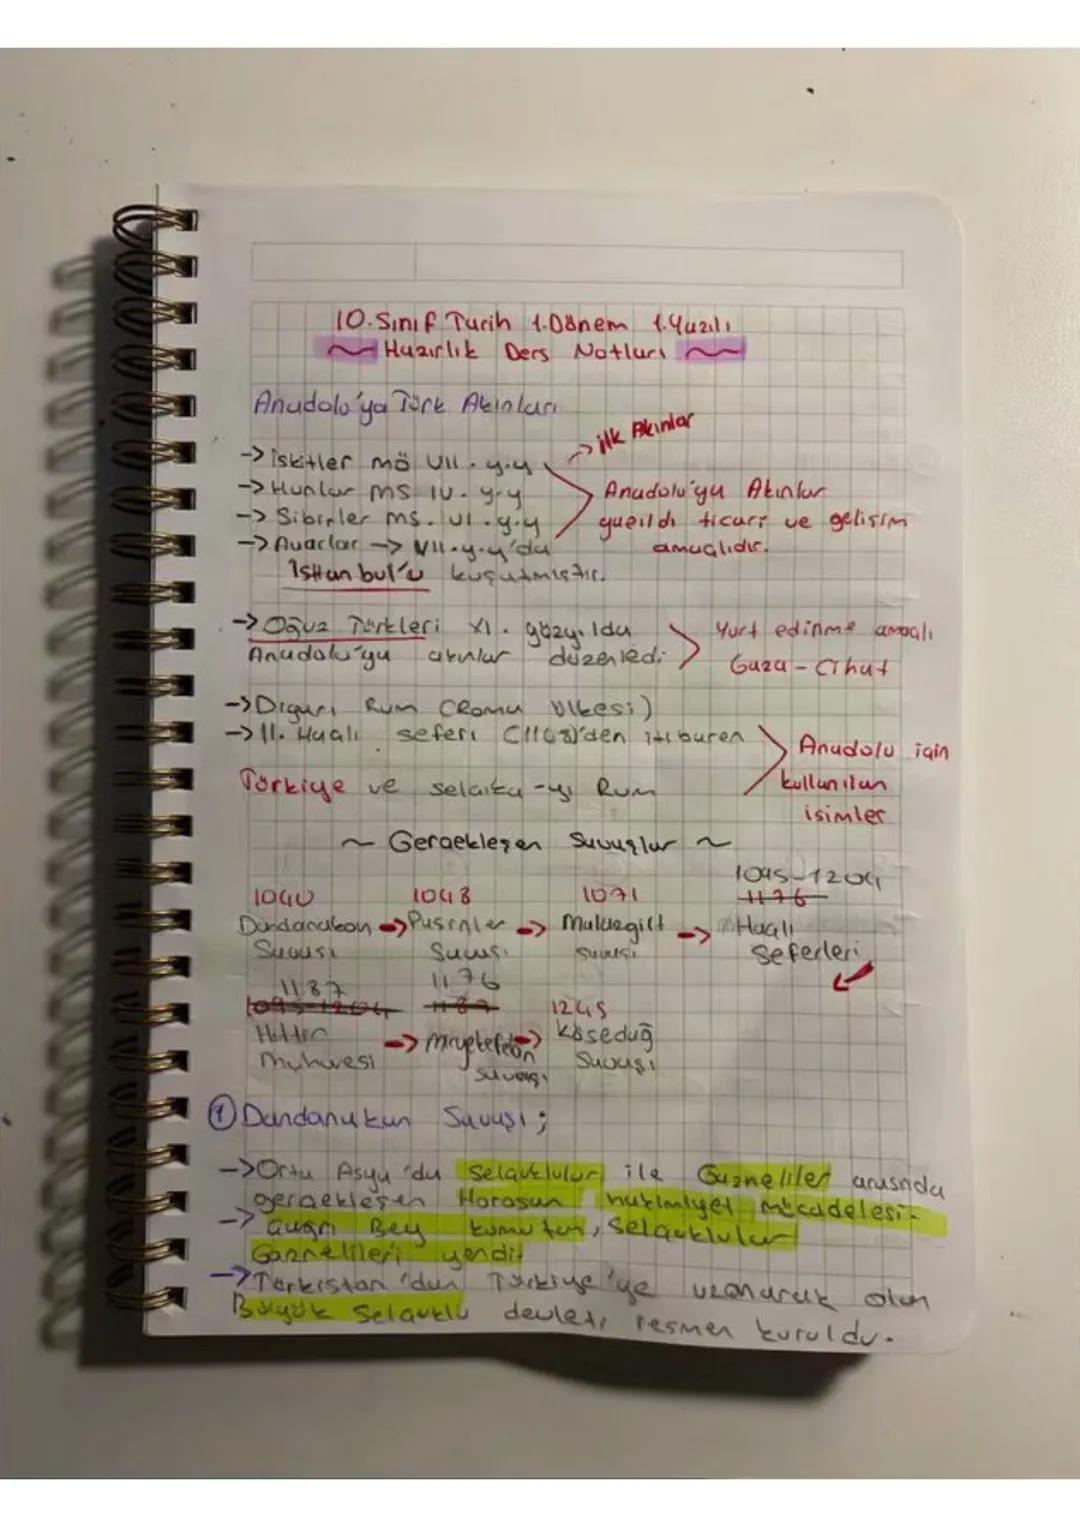 10.Sınıf Tarih 1.Dönem 1.Yazılı
Hazırlık Ders Notları
Anadolu'ya Türk Akınları
-> ilk Akınlar
-> İskitler mö VII. y.y
-> Hunlar ms IV. y.y
-> Sibirler ms. VI. y.y
-> Avarlar -> VII. y.y'da
İstanbul'u kuşatmıştır.
Anadolu'ya Akınlar
yapıldı ticari ve gelişim
amaçlıdır.
-> Oğuz Türkleri XI. yüzyılda
Anadolu'ya akınlar düzenledi
Yurt edinme amaçlı
Gaza - Cihat
-> Diyarı Rum (Roma Ülkesi)
-> II. Haçlı seferi (1148)'den itibaren
Türkiye ve selaika-yı Rum
Anadolu için
kullanılan
isimler
~ Gerçekleşen Savaşlar ~
1040 1048 1071 1095-1204
1176
Dandanakan -> Pasinler -> Malazgirt -> Haçlı
Savaşı Savaşı Savaşı Seferleri
1187 1176
1095-1204 1187 1243
Hıttin -> Miryokefelon -> Kösedağ
Muharebesi Savaşı Savaşı
① Dandanakan Savaşı;
-> Orta Asya'da Selçuklular ile Gazneliler arasında
gerçekleşen Horasan hakimiyet mücadelesi.
-> Çağrı Bey komutan, Selçuklular
Gaznelileri yendi.
-> Türkistan'dan Türkiye'ye uzanacak olan
Büyük Selçuklu devleti resmen kuruldu.